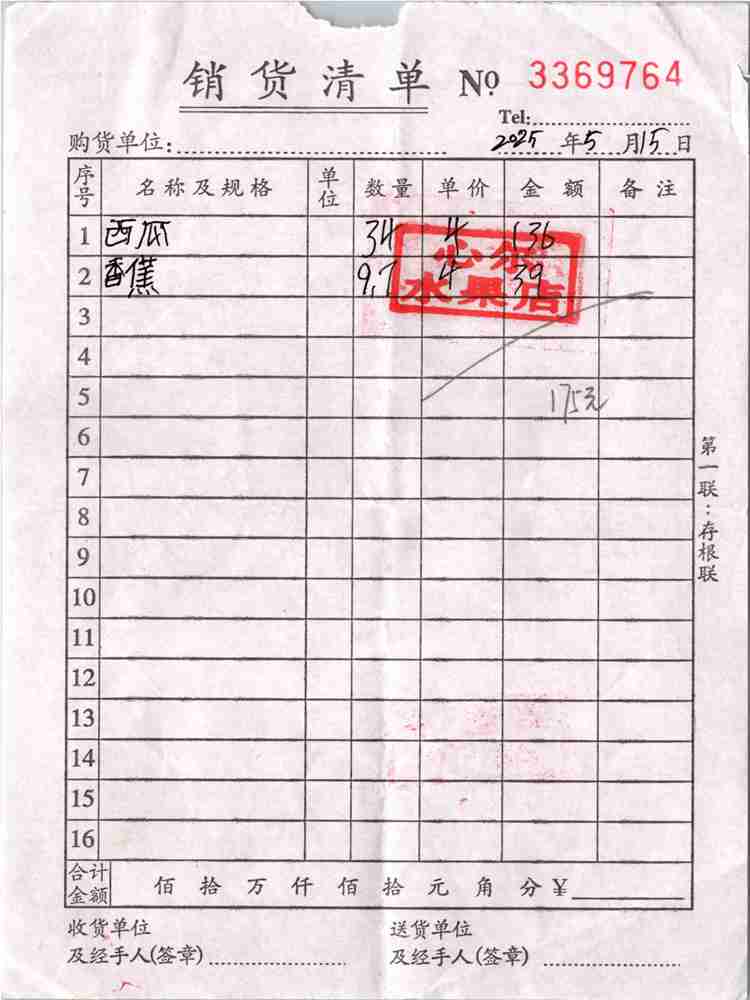 销货清单 № 3369764
Tel:
购货单位: 2025年5月15日
序号 名称及规格 单位 数量 单价 金额 备注
1 西瓜 34 4 136
2 香蕉 9.7 4 39
水果店
3
4
5 175元
6
7
8
9
10
11
12
13
14
15
16
合计金额 佰拾万仟佰拾元角分¥
收货单位 送货单位
及经手人(签章) 及经手人(签章)
第一联:存根联